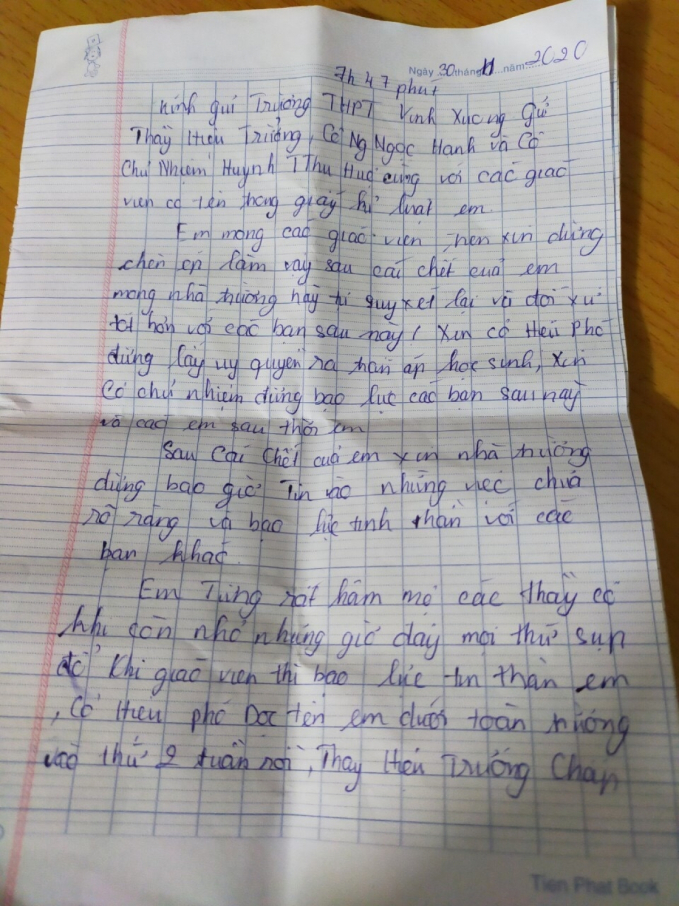 Ngày 30 tháng 11 năm 2020
7h 47 phut
Kính gửi Trường THPT Vĩnh Xương Gửi
Thầy Hiệu Trưởng, Cô Ng Ngọc Hạnh và Cô
Chủ Nhiệm Huỳnh T Thu Huệ cùng với các giáo
viên có tên trong giấy kỉ luật em.
Em mong các giáo viên, xin đừng
chèn ép lắm vậy sau cái chết của em
mong nhà trường hãy suy xét lại và đối xử
tốt hơn với các bạn sau này! Xin cô Hiệu phó
đừng lấy uy quyền ra trấn áp học sinh, xin
Cô chủ nhiệm đừng bạo lực các bạn sau này
và các em sau thời em
Sau Cái Chết của em xin nhà trường
đừng bao giờ Tin vào những việc chưa
rõ ràng và bạo lực tinh thần với các
bạn khác.
Em Từng rất hâm mộ các thầy cô
khi còn nhỏ nhưng giờ đây mọi thứ sụp
đổ Khi giáo viên thì bạo lực tin thần em
, Cô Hiệu phó Đọc tên em dưới toàn trường
vào thứ 2 tuần rồi, Thầy Hiệu Trưởng Chấp
Tien Phat Book